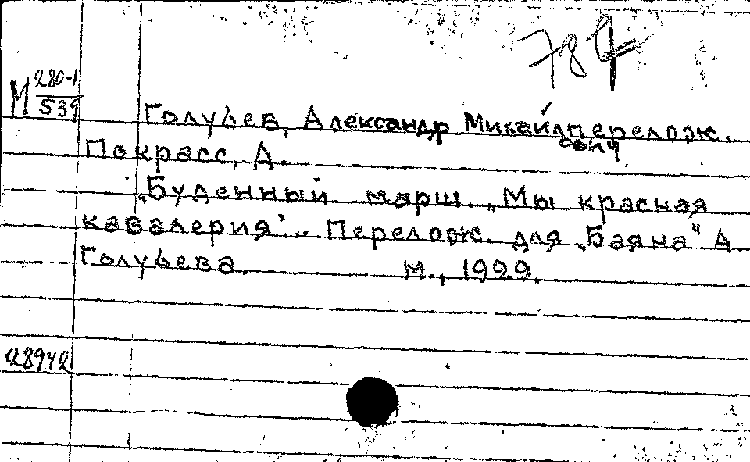 784
М 280-1
539
Голубев, Александр Михайлович переложж.
Покрасс, А.
"Буденный марш. "Мы красная
кавалерия". Перелож. для "Баяна" А.
Голубева. М., 1929.
28942